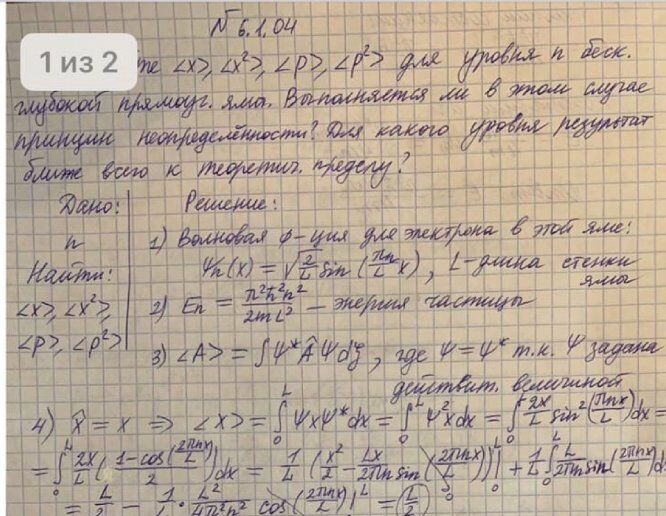 № 6.1.04
1 из 2
те <x>, <x²>, <p>, <p²> для уровня n беск.
глубокой прямоуг. ямы. Выполняется ли в этом случае
принцип неопределённости? Для какого уровня результат
ближе всего к теоретич. пределу?
Дано: Решение:
n 1) Волновая ф-ция для электрона в этой яме:
Ψn(x) = √(2/L) sin(πn/L x), L-длина стенки ямы
Найти:
<x>, <x²>,
<p>, <p²>
2) En = π²ħ²n²/2mL² — энергия частицы
3) <A> = ∫Ψ*ÂΨdξ, где Ψ=Ψ* т.к. Ψ задана
действит. величиной
4) x̂ = x ⇒ <x> = ∫₀ᴸ ΨxΨ*dx = ∫₀ᴸ Ψ²xdx = ∫₀ᴸ 2x/L sin²(πnx/L)dx =
= ∫₀ᴸ 2x/L (1-cos(2πnx/L)/2)dx = 1/L (x²/2 - Lx/2πn sin(2πnx/L))|₀ᴸ + 1/L ∫₀ᴸ L/2πn sin(2πnx/L)dx =
= L/2 - 1/L · L²/4π²n² cos(2πnx/L)|₀ᴸ = L/2